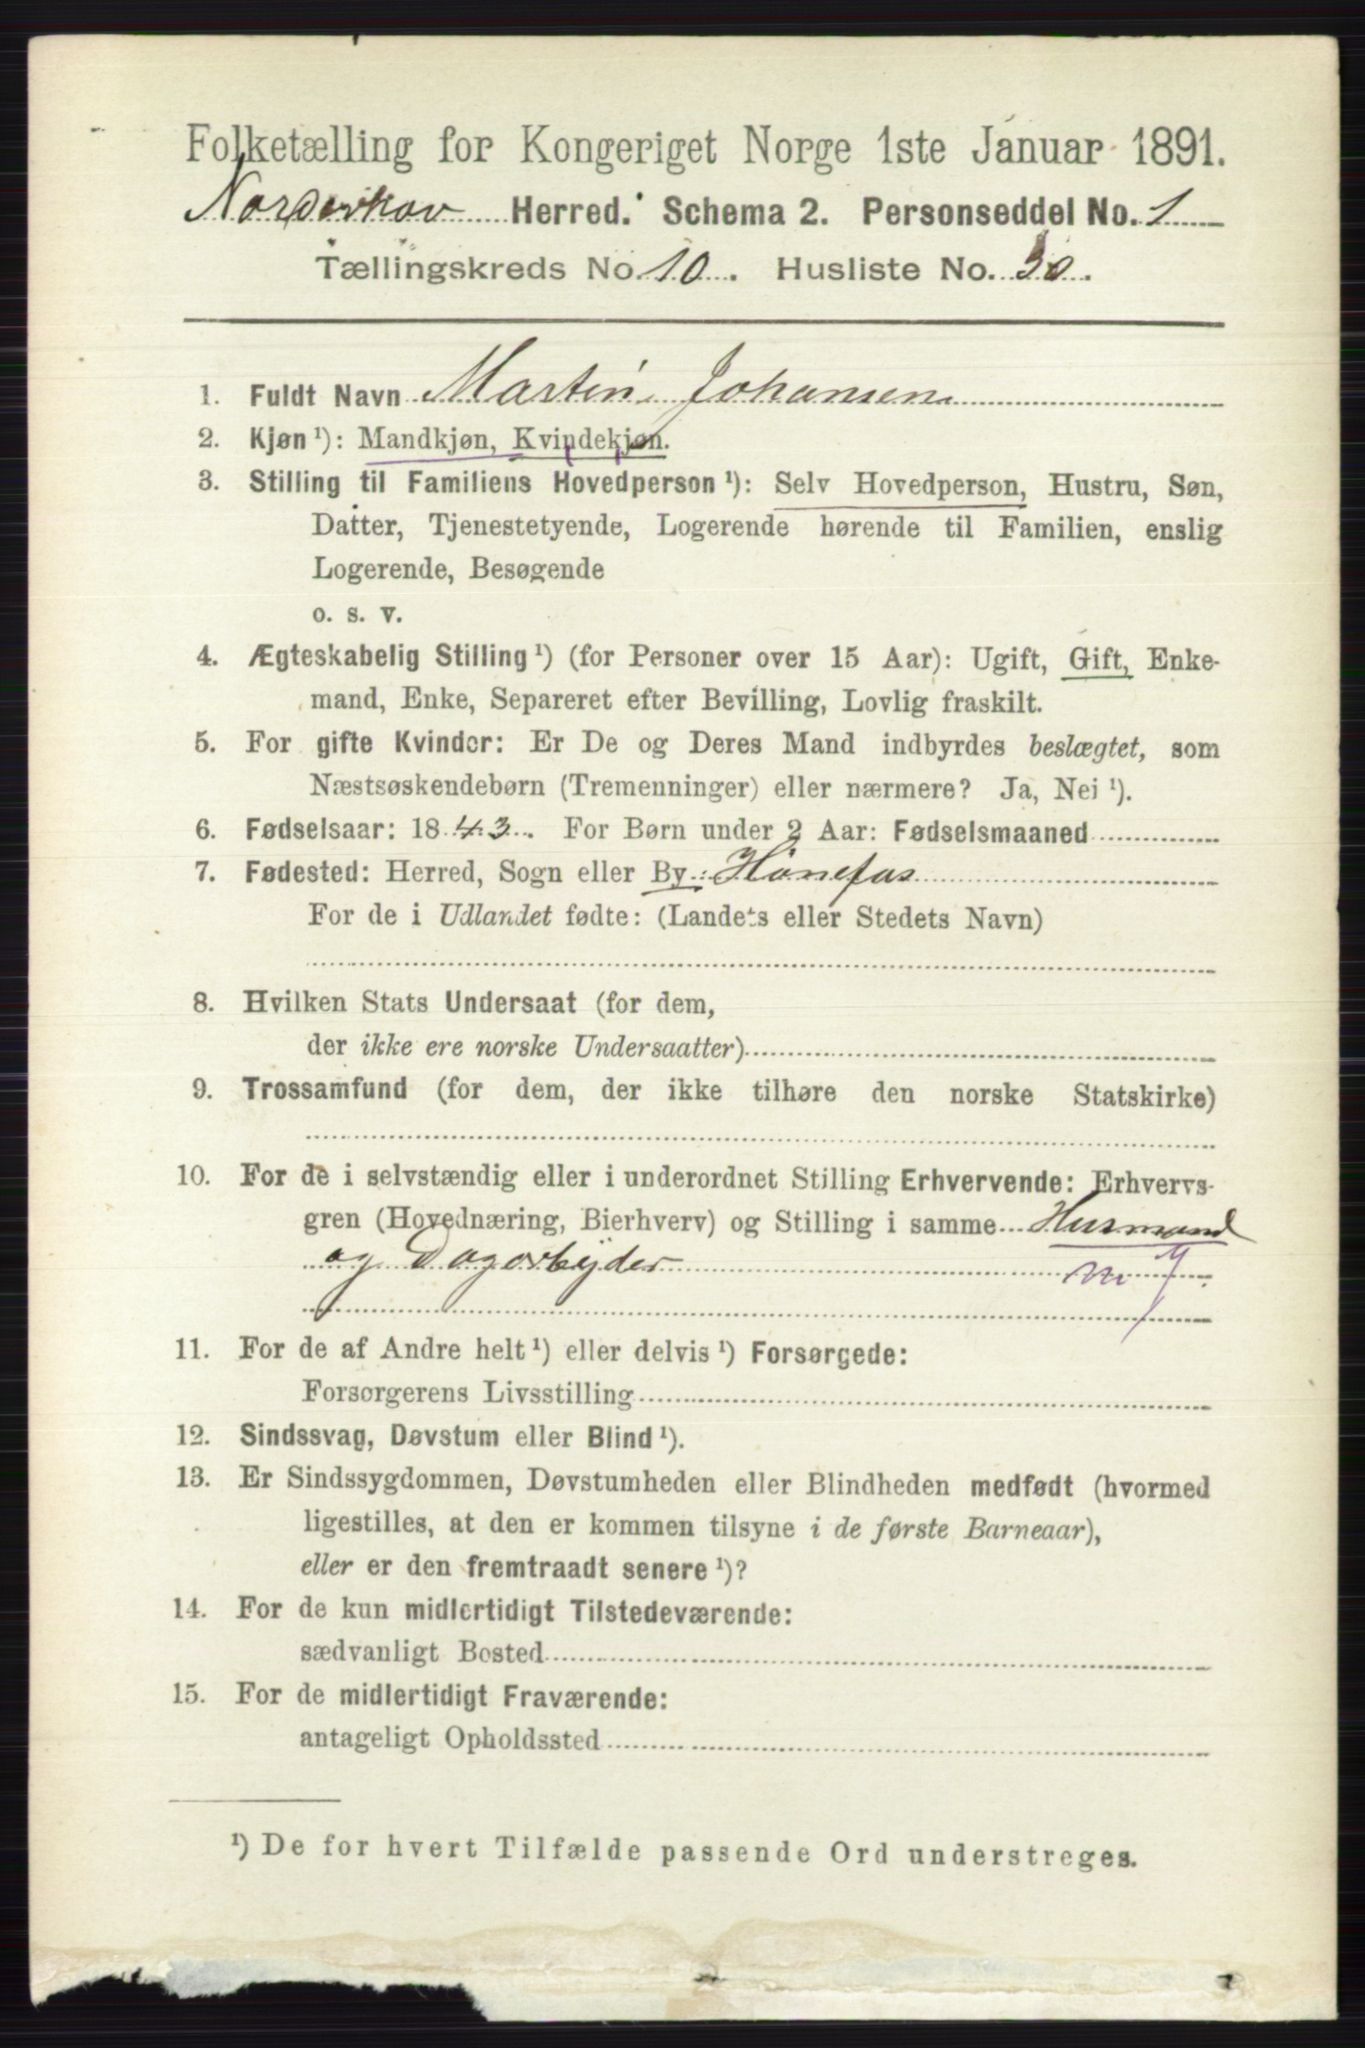 Folketælling for Kongeriget Norge 1ste Januar 1891.
Norderhov Herred. Schema 2. Personseddel No. 1
Tællingskreds No. 10. Husliste No. 30.
1. Fuldt Navn Martin Johansen
2. Kjøn¹): Mandkjøn, Kvindekjøn.
3. Stilling til Familiens Hovedperson¹): Selv Hovedperson, Hustru, Søn,
Datter, Tjenestetyende, Logerende hørende til Familien, enslig
Logerende, Besøgende
o. s. v.
4. Ægteskabelig Stilling¹) (for Personer over 15 Aar): Ugift, Gift, Enke-
mand, Enke, Separeret efter Bevilling, Lovlig fraskilt.
5. For gifte Kvinder: Er De og Deres Mand indbyrdes beslægtet, som
Næstsøskendebørn (Tremenninger) eller nærmere? Ja, Nei¹).
6. Fødselsaar: 1843. For Børn under 2 Aar: Fødselsmaaned
7. Fødested: Herred, Sogn eller By: Hønefos
For de i Udlandet fødte: (Landets eller Stedets Navn)
8. Hvilken Stats Undersaat (for dem,
der ikke ere norske Undersaatter)
9. Trossamfund (for dem, der ikke tilhøre den norske Statskirke)
10. For de i selvstændig eller i underordnet Stilling Erhvervende: Erhvervs-
gren (Hovednæring, Bierhverv) og Stilling i samme Husmand
og Dagarbejder
m J.
11. For de af Andre helt¹) eller delvis¹) Forsørgede:
Forsørgerens Livsstilling
12. Sindssvag, Døvstum eller Blind¹).
13. Er Sindssygdommen, Døvstumheden eller Blindheden medfødt (hvormed
ligestilles, at den er kommen tilsyne i de første Barneaar),
eller er den fremtraadt senere¹)?
14. For de kun midlertidigt Tilstedeværende:
sædvanligt Bosted
15. For de midlertidigt Fraværende:
antageligt Opholdssted
¹) De for hvert Tilfælde passende Ord understreges.